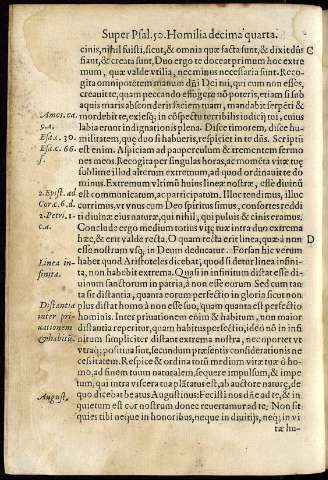 Super Psal. 50. Homilia decima quarta.
cinis, nihil fuisti, sicut, & omnia quæ facta sunt, & dixit dñs C
fiant, & creata sunt. Duo ergo te doceat primum hoc extre
mum, quæ valde vtilia, nec minus necessaria sunt. Reco-
gita omnipotētem manum dñi Dei tui, qui cum non esses,
creauit te, quam peccando effugere nō poteris, etiam si sub
aquis maris absconderis faciem tuam, mandabit serpēti &
Amos. ca. mordebit te, exiesq; in cōspectu terribilis iudicij tui, cuius
9.a. labia erunt indignationis plena. Disce timorem, disce hu-
Esa. c. 30. militatem, quæ duo si habueris, respiciet in te dñs. Scriptū
Esa. c. 66. est enim. Aspiciam ad pauperculum & trementem sermo
f. nes meos. Recogita per singulas horas, ac momēta vitæ tuę
sublime illud alterum extremum, ad quod ordinauit te do
minus. Extremum vltimū huius lineæ nostræ, esse diuinū
2. Epist. ad est communicatum, ac participatum. Illuc tendimus, illuc
Cor. c. 6. d. currimus, vt vnus cum Deo spiritus simus, consortes reddi
2. Petri. 1. ti diuinæ eius naturæ, qui nihil, qui puluis & cinis eramus.
c.a. Conclude ergo medium totius vitę tuæ intra duo extrema
hæc, & erit valde recta. O quam recta erit linea, quæ à non D
esse nostrum vsq; in Deum deducatur. Forsan hic verum
Linea in- habet quod Aristoteles dicebat, quod si detur linea infini-
finita. ta, non habebit extrema. Quasi in infinitum distat esse di-
uinum sanctorum in patria, à non esse eorum. Sed cum tan
ta sit distantia, quanta eorum perfectio in gloria sicut non
Distantia plus distat homo à non esse suo, quam quanta est perfectio
inter pri- hominis. Inter priuationem enim & habitum, non maior
uationem distantia reperitur, quam habitus perfectio, ideò nō in infi
& habitū. nitum simpliciter distant extrema nostra, nec oportet vt
vtraq; positiua sint, secundum præsentis considerationis ne
cessitatem. Respice & ordina totū medium vitæ tuæ ô ho-
mo, ad finem tuum naturalem, sequere impulsum, & impe
tum, qui intra viscera tua plātatus est, ab auctore naturę, de
August. quo dicebat beatus Augustinus: Fecisti nos dñe ad te, & in
quietum est cor nostrum donec reuertamur ad te. Non sit
quies tibi neque in honoribus, neque in diuitijs, neq; in vi
tæ hu-